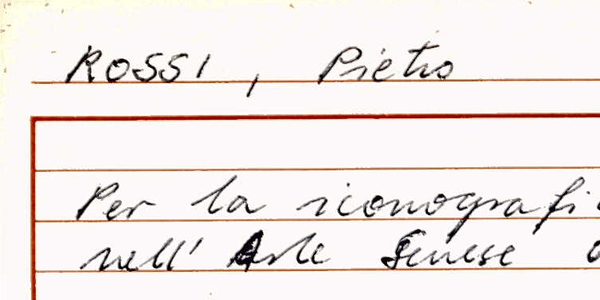 ROSSI, Pietro
Per la iconografi
nell' Arte Senese